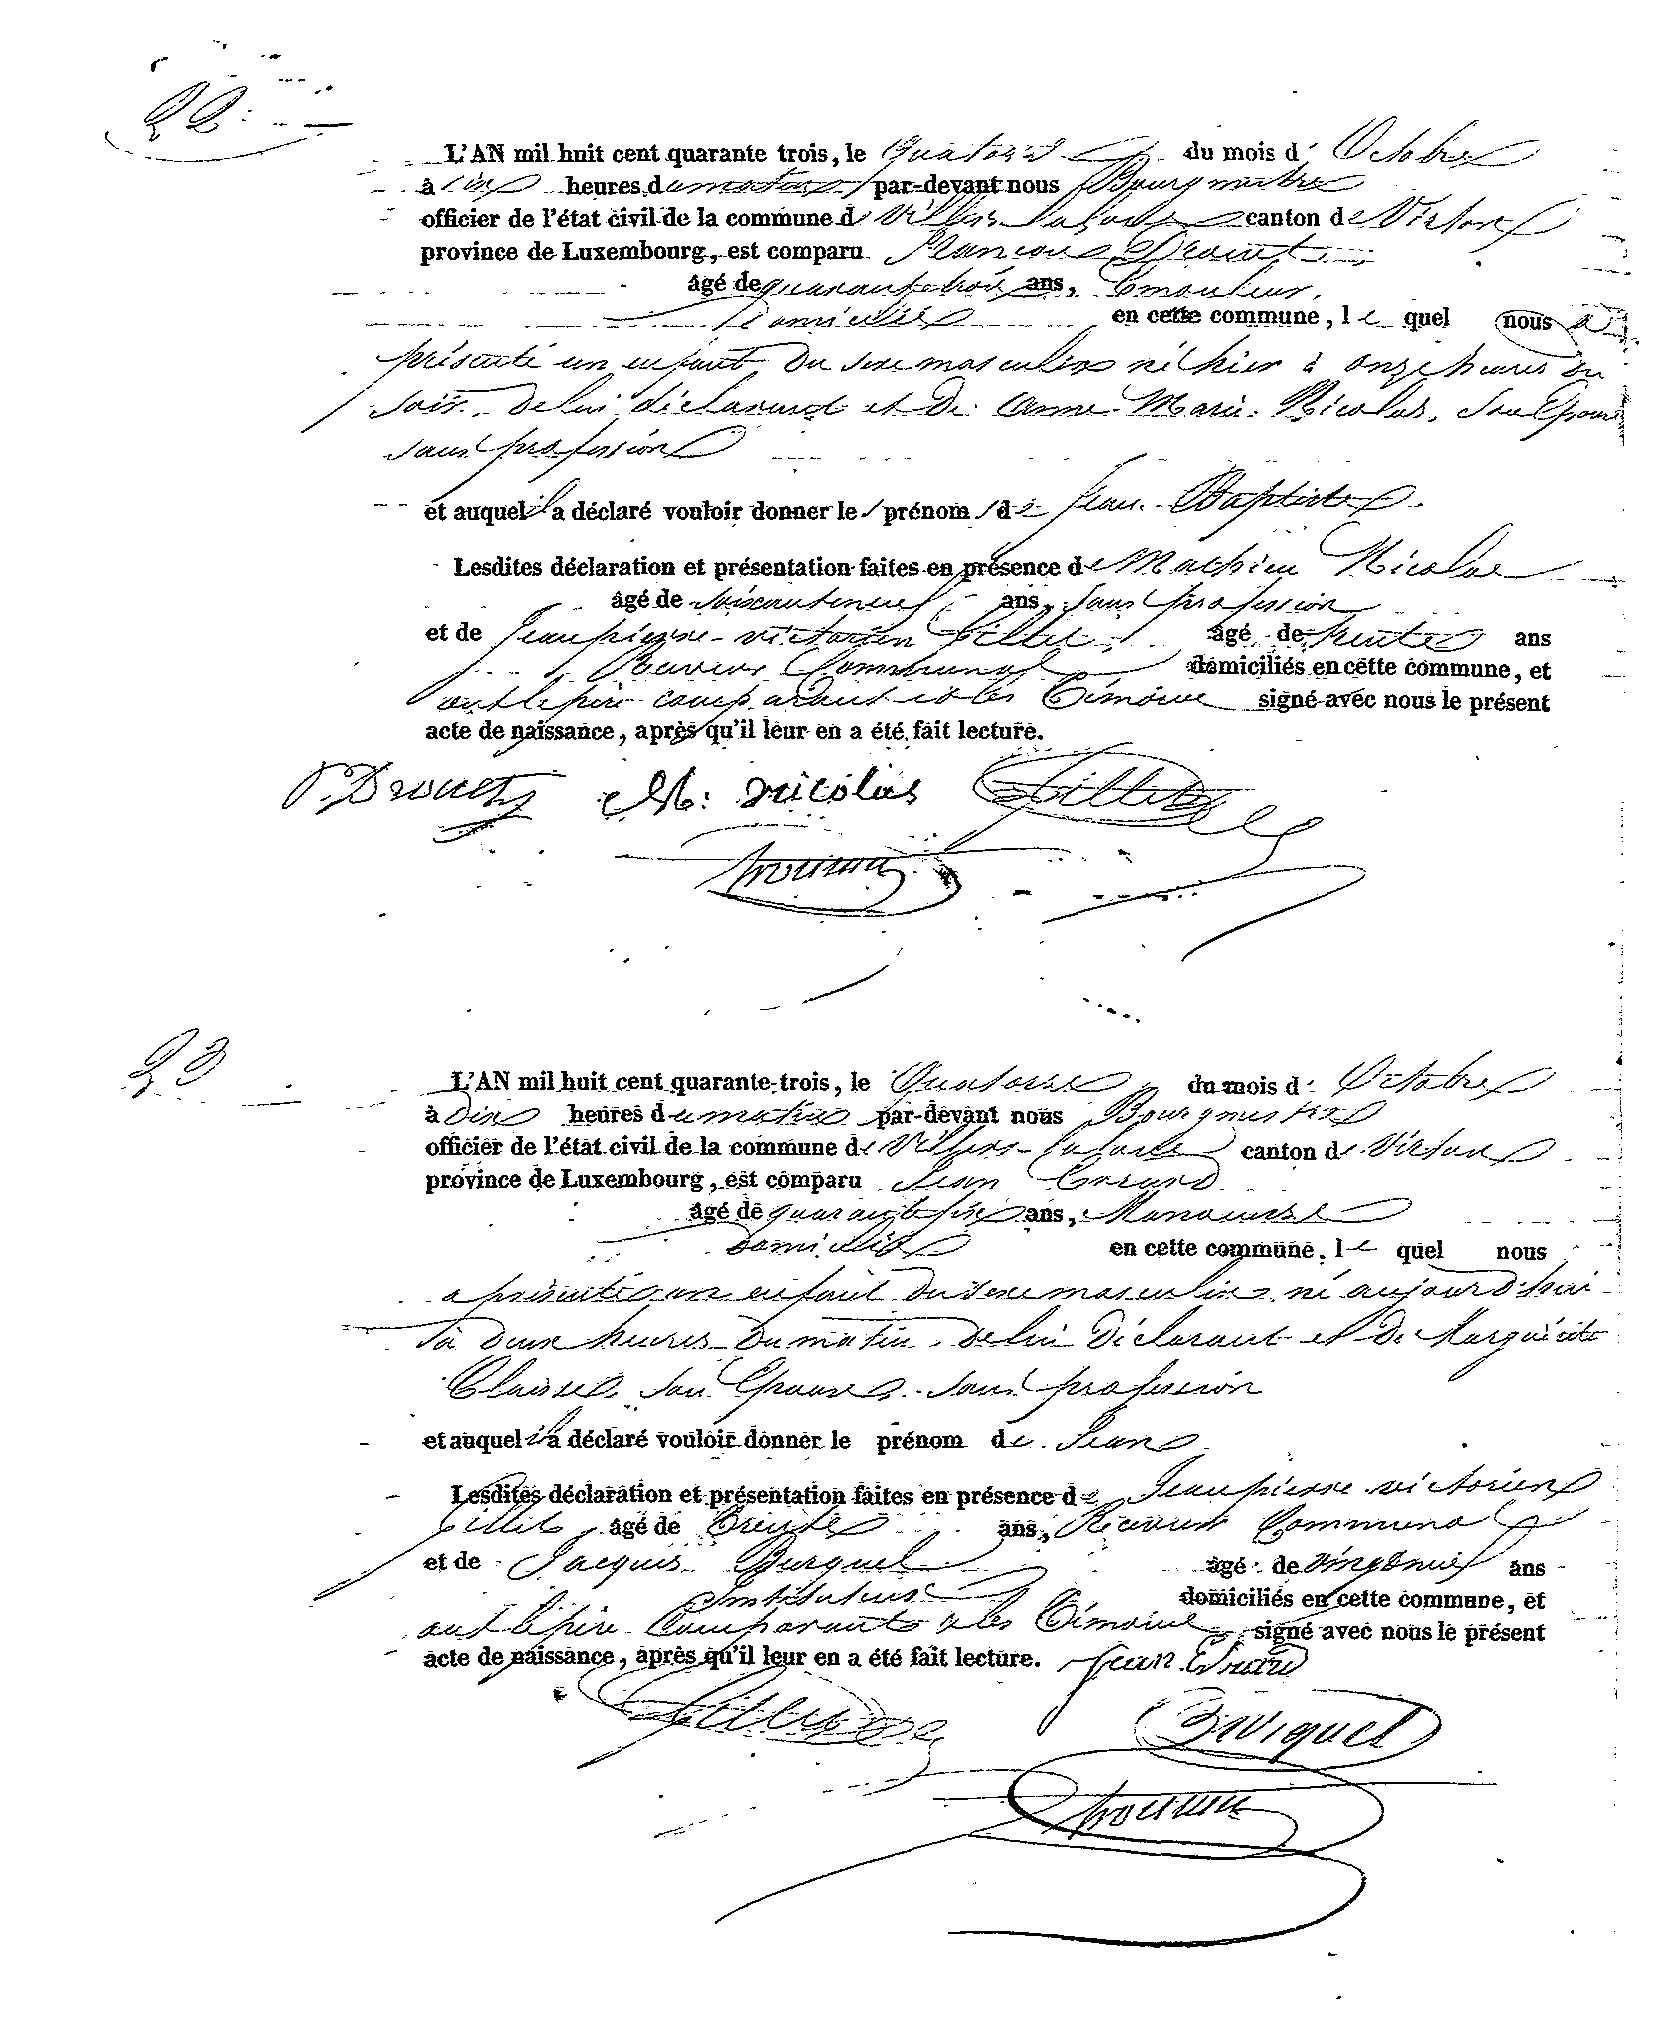 22
L'AN mil huit cent quarante trois, le Quatorze du mois d'Octobre
à dix heures du matin par-devant nous Bourgmestre
officier de l'état civil de la commune de Villers la loue canton de Virton
province de Luxembourg, est comparu François Drouet
âgé de quarante trois ans, Emouleur,
domicilié en cette commune, le quel nous a
présenté un enfant du sexe masculin né hier à onze heures du
soir. de lui déclarant et de Anne Marie Nicolas, son Epouse
sans profession
et auquel il a déclaré vouloir donner le prénom de Jean Baptiste
Lesdites déclaration et présentation faites en présence de Mathieu Nicolas
âgé de soixante neuf ans, sans profession
et de Jean pierre victorien âgé de trente ans
Receveur Communal domiciliés en cette commune, et
ont le père comparant et les témoins signé avec nous le présent
acte de naissance, après qu'il leur en a été fait lecture.
Drouet M. nicolas
23
L'AN mil huit cent quarante-trois, le Quatorze du mois d'Octobre
à dix heures du matin par-devant nous Bourgmestre
officier de l'état civil de la commune de Villers-la loue canton de Virton
province de Luxembourg, est comparu Jean
âgé de quarante six ans, Manoeuvre
domicilié en cette commune, le quel nous
a présenté un enfant du sexe masculin né aujourd'hui
à deux heures du matin, de lui déclarant et de Marguerite
Claisse, son Epouse, sans profession
et auquel il a déclaré vouloir donner le prénom de Jean
Lesdites déclaration et présentation faites en présence de Jean pierre victorien
âgé de Trente ans, Receveur Communal
et de Jacques âgé de vingt neuf ans
Instituteur domiciliés en cette commune, et
ont le père Comparant et les témoins signé avec nous le présent
acte de naissance, après qu'il leur en a été fait lecture. Jean